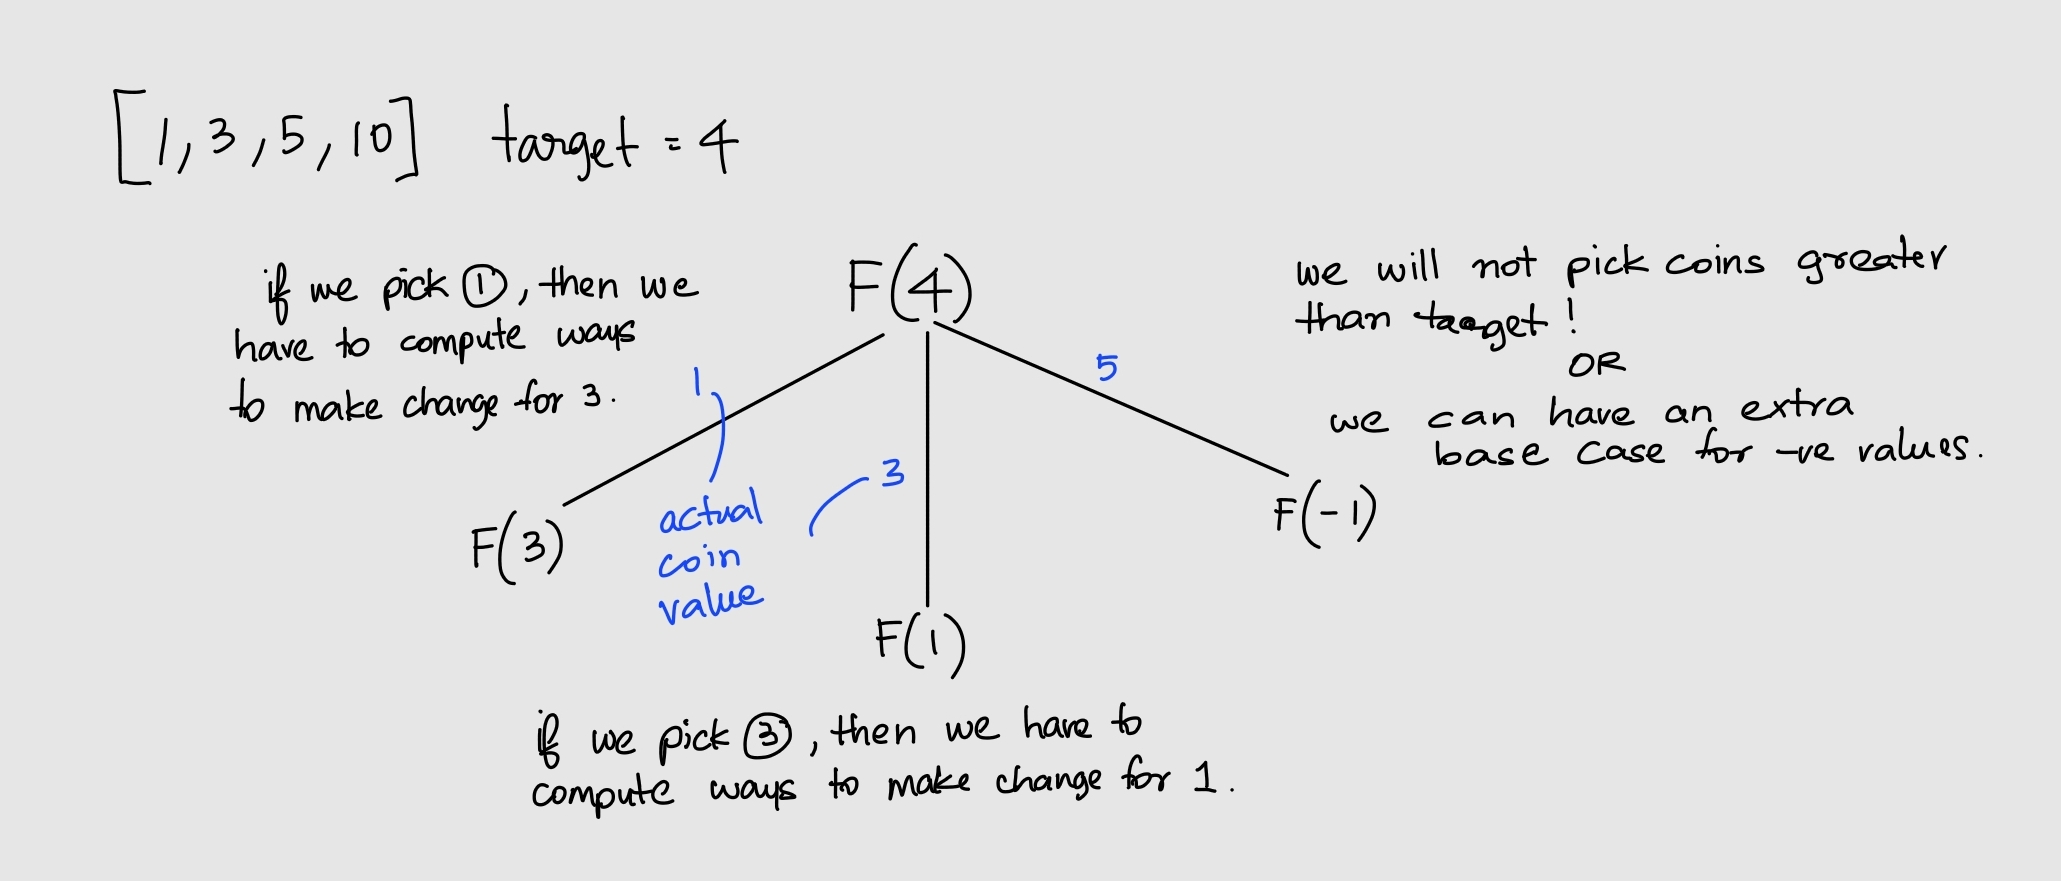 [1, 3, 5, 10] target = 4
if we pick ①, then we
have to compute ways
to make change for 3.
F(4)
we will not pick coins greater
than target!
OR
we can have an extra
base case for -ve values.
1
5
3
actual
coin
value
F(3)
F(-1)
F(1)
if we pick ③, then we have to
compute ways to make change for 1.